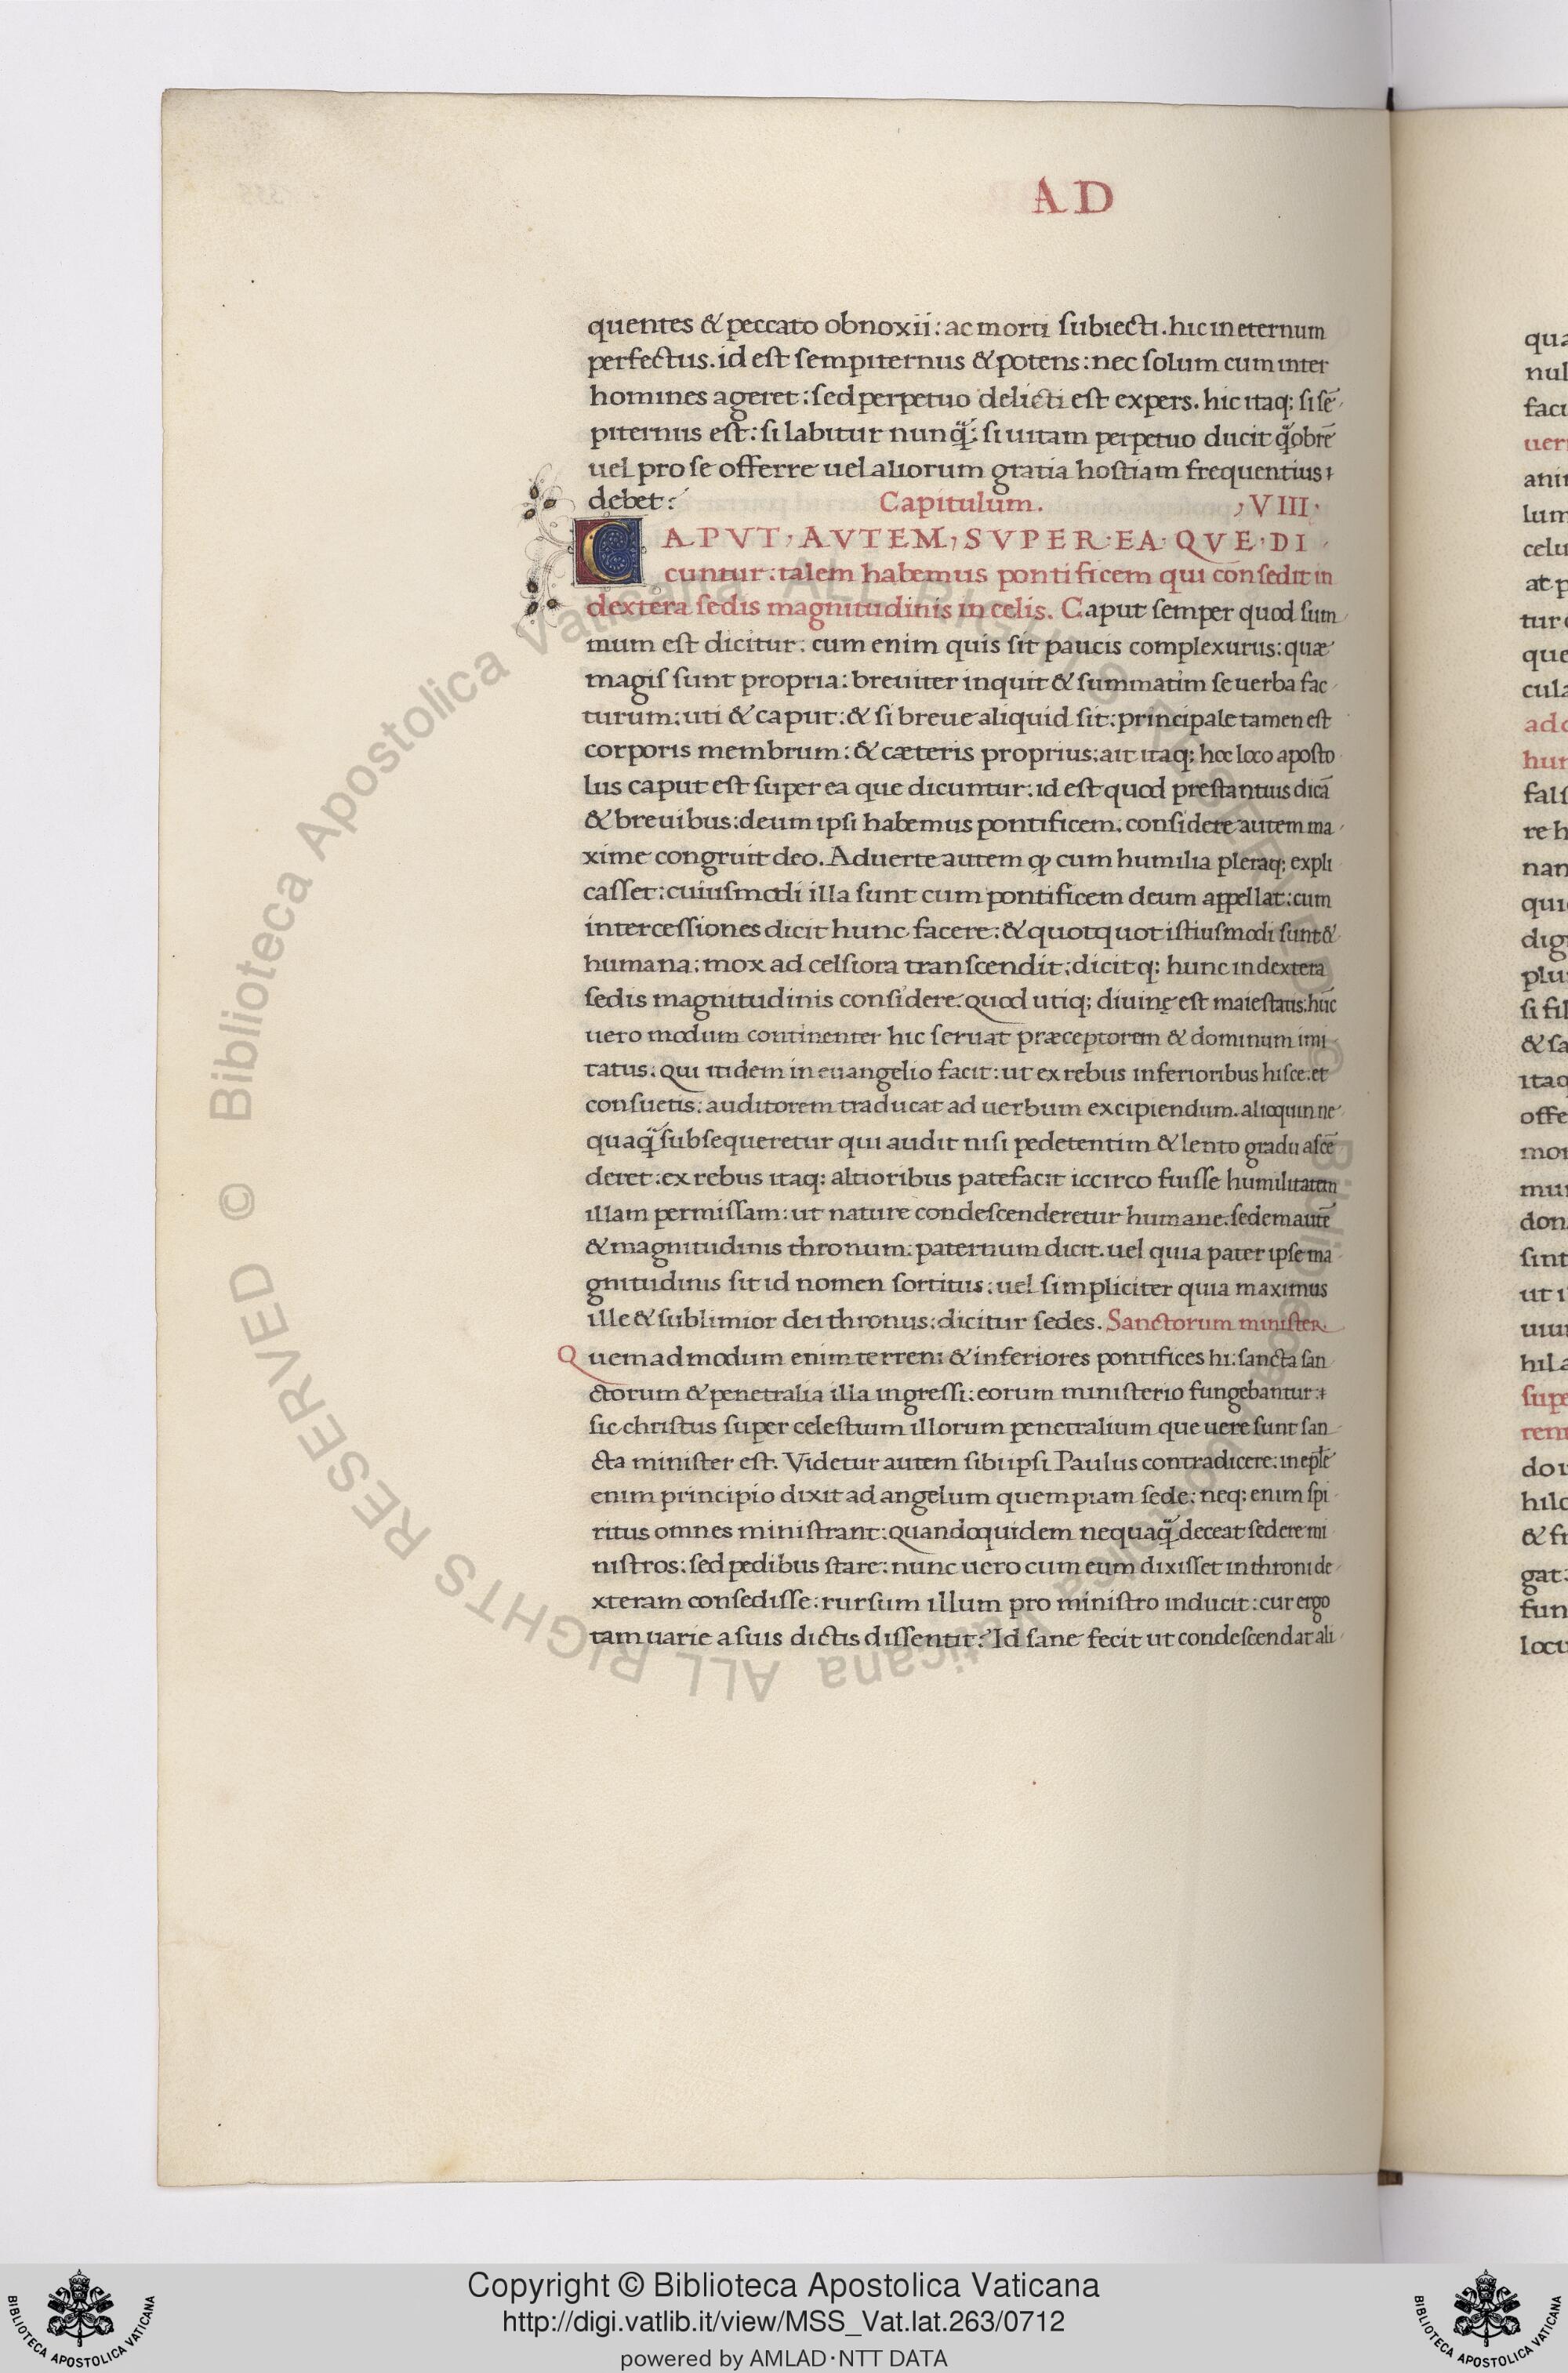 AD
quentes & peccato obnoxii: ac morti subiecti. hic in eternum
perfectus. id est sempiternus & potens: nec solum cum inter
homines ageret: sed perpetuo delicti est expers. hic itaq; si sē
piternus est: si labitur nunq̄: si uitam perpetuo ducit q̄obrē
uel pro se offerre uel aliorum gratia hostiam frequentius
debet:
Capitulum. VIII.
CAPVT, AVTEM, SVPER. EA. QVE. DI
cuntur: talem habemus pontificem qui consedit in
dextera sedis magnitudinis in celis. Caput semper quod sum
mum est dicitur: cum enim quis sit paucis complexurus: quæ
magis sunt propria: breuiter inquit & summatim se uerba fac
turum: uti & caput: & si breue aliquid sit: principale tamen est
corporis membrum: & cæteris proprius: ait itaq; hoc loco aposto
lus caput est super ea que dicuntur: id est quod prestantius dicā
& breuibus: deum ipsi habemus pontificem: considere autem ma
xime congruit deo. Aduerte autem ꝙ cum humilia pleraq; expli
casset: cuiusmodi illa sunt cum pontificem deum appellat: cum
intercessiones dicit hunc facere: & quotquot istiusmodi sunt &
humana: mox ad celsiora transcendit: dicitq; hunc in dextera
sedis magnitudinis considere. quod utiq; diuinę est maiestatis. hūc
uero modum continenter hic seruat præceptorem & dominum imi
tatus. qui itidem in euangelio facit: ut ex rebus inferioribus hisce: et
consuetis: auditorem traducat ad uerbum excipiendum. alioquin ne
quaq̄ subsequeretur qui audit nisi pedetentim & lento gradu ascē
deret: ex rebus itaq; altioribus patefacit iccirco fuisse humilitatem
illam permissam: ut nature condescenderetur humane. sedem autē
& magnitudinis thronum: paternum dicit. uel quia pater ipse ma
gnitudinis sit id nomen sortitus: uel simpliciter quia maximus
ille & sublimior dei thronus: dicitur sedes. Sanctorum minister
Quemadmodum enim terreni & inferiores pontifices hi: sancta san
ctorum & penetralia illa ingressi: eorum ministerio fungebantur:
sic christus super celestium illorum penetralium que uere sunt san
cta minister est. Videtur autem sibi ipsi Paulus contradicere: in eplē
enim principio dixit ad angelum quempiam sede: neq; enim spi
ritus omnes ministrant: quandoquidem nequaq̄ deceat sedere mi
nistros: sed pedibus stare: nunc uero cum eum dixisset in throni de
xteram consedisse: rursum illum pro ministro inducit: cur ergo
tam uarie a suis dictis dissentit? Id sane fecit ut condescendat ali
© Biblioteca Apostolica Vaticana ALL RIGHTS RESERVED
Copyright © Biblioteca Apostolica Vaticana
http://digi.vatlib.it/view/MSS_Vat.lat.263/0712
powered by AMLAD·NTT DATA
BIBLIOTECA APOSTOLICA VATICANA
BIBLIOTECA APOSTOLICA VATICANA